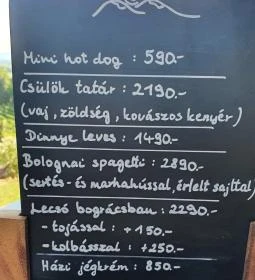 Mini hot dog : 590.-
Csülök tatár : 2190.-
(vaj, zöldség, kovászos kenyér)
Dinnye leves : 1490.-
Bolognai spagetti : 2890.-
(sertés- és marhahússal, érlelt sajttal)
Lecsó bográcsban : 2290.-
- tojással : +150.-
- kolbásszal : +250.-
Házi jégkrém : 850.-